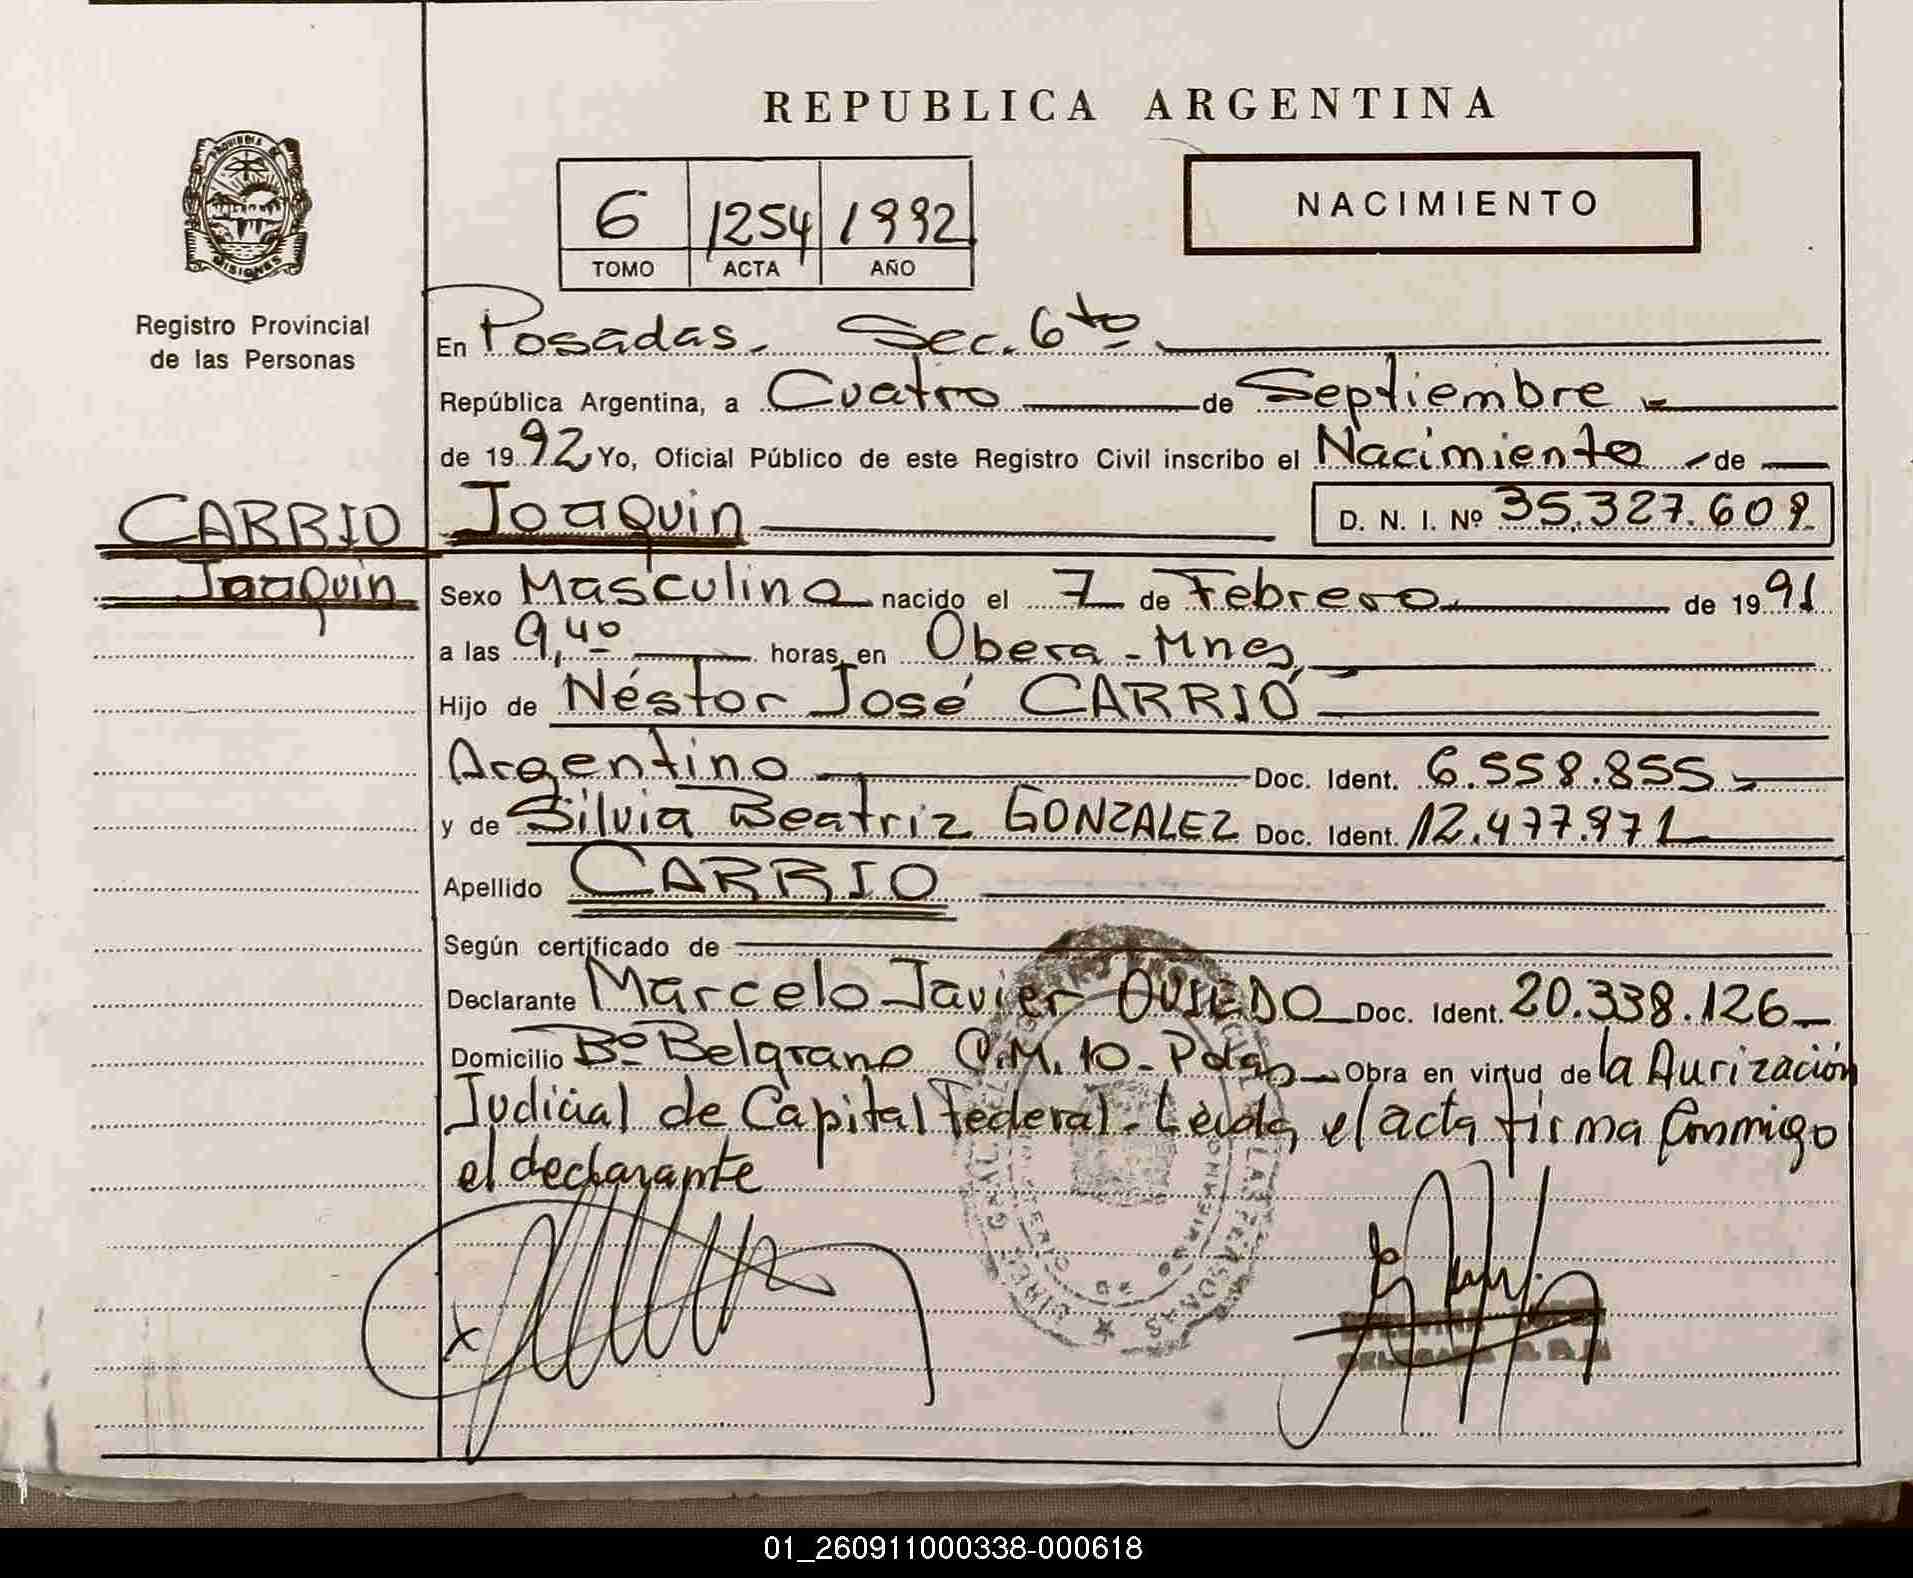 REPUBLICA ARGENTINA
PROVINCIA DE
MISIONES
Registro Provincial
de las Personas
6 1254 1992
TOMO ACTA AÑO
NACIMIENTO
En Posadas. Sec. 6to.
República Argentina, a Cuatro de Septiembre
de 1992 Yo, Oficial Público de este Registro Civil inscribo el Nacimiento de
CARRIO
Joaquin
Joaquin D. N. I. Nº 35.327.608
Sexo Masculino nacido el 7 de Febrero de 1991
a las 9,40 horas, en Obera - Mnes
Hijo de Néstor José CARRIÓ
Argentino Doc. Ident. 6.558.855
y de Silvia Beatriz GONZALEZ Doc. Ident. 12.477.971
Apellido CARRIO
Según certificado de
Declarante Marcelo Javier OVIEDO Doc. Ident. 20.338.126
Domicilio Bº Belgrano 10 - Pdas Obra en virtud de la Aurización
Judicial de Capital Federal. Leída el acta firma Conmigo
el declarante
01_260911000338-000618